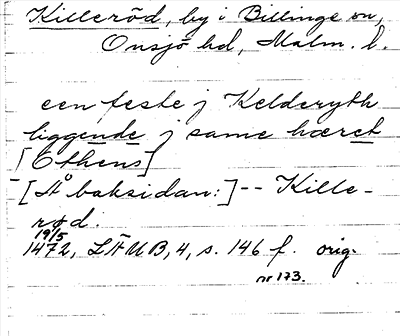 Killeröd, by i Billinge sn,
Onsjö hd, Malm. l.
een feste j Kelderyth
liggende j same hæret
[Othens]
[Å baksidan:] -- Kille-
rød.
19/5
1472, LÄUB, 4, s. 146 f. orig.
nr 173.